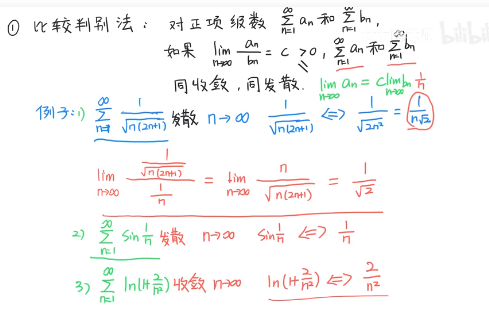 ① 比较判别法: 对正项级数 $\sum_{n=1}^{\infty} a_n$ 和 $\sum_{n=1}^{\infty} b_n$,
如果 $\lim_{n\to\infty} \frac{a_n}{b_n} = c > 0$, $\sum_{n=1}^{\infty} a_n$ 和 $\sum_{n=1}^{\infty} b_n$
同收敛, 同发散. $\lim_{n\to\infty} a_n = c \lim_{n\to\infty} b_n$ $\frac{1}{n}$
例子: 1) $\sum_{n=1}^{\infty} \frac{1}{\sqrt{n(2n+1)}}$ 发散 $n\to\infty$ $\frac{1}{\sqrt{n(2n+1)}} \Leftrightarrow \frac{1}{\sqrt{2n^2}} = \frac{1}{n\sqrt{2}}$
$\lim_{n\to\infty} \frac{\frac{1}{\sqrt{n(2n+1)}}}{\frac{1}{n}} = \lim_{n\to\infty} \frac{n}{\sqrt{n(2n+1)}} = \frac{1}{\sqrt{2}}$
2) $\sum_{n=1}^{\infty} \sin\frac{1}{n}$ 发散 $n\to\infty$ $\sin\frac{1}{n} \Leftrightarrow \frac{1}{n}$
3) $\sum_{n=1}^{\infty} \ln(1+\frac{2}{n^2})$ 收敛 $n\to\infty$ $\ln(1+\frac{2}{n^2}) \Leftrightarrow \frac{2}{n^2}$